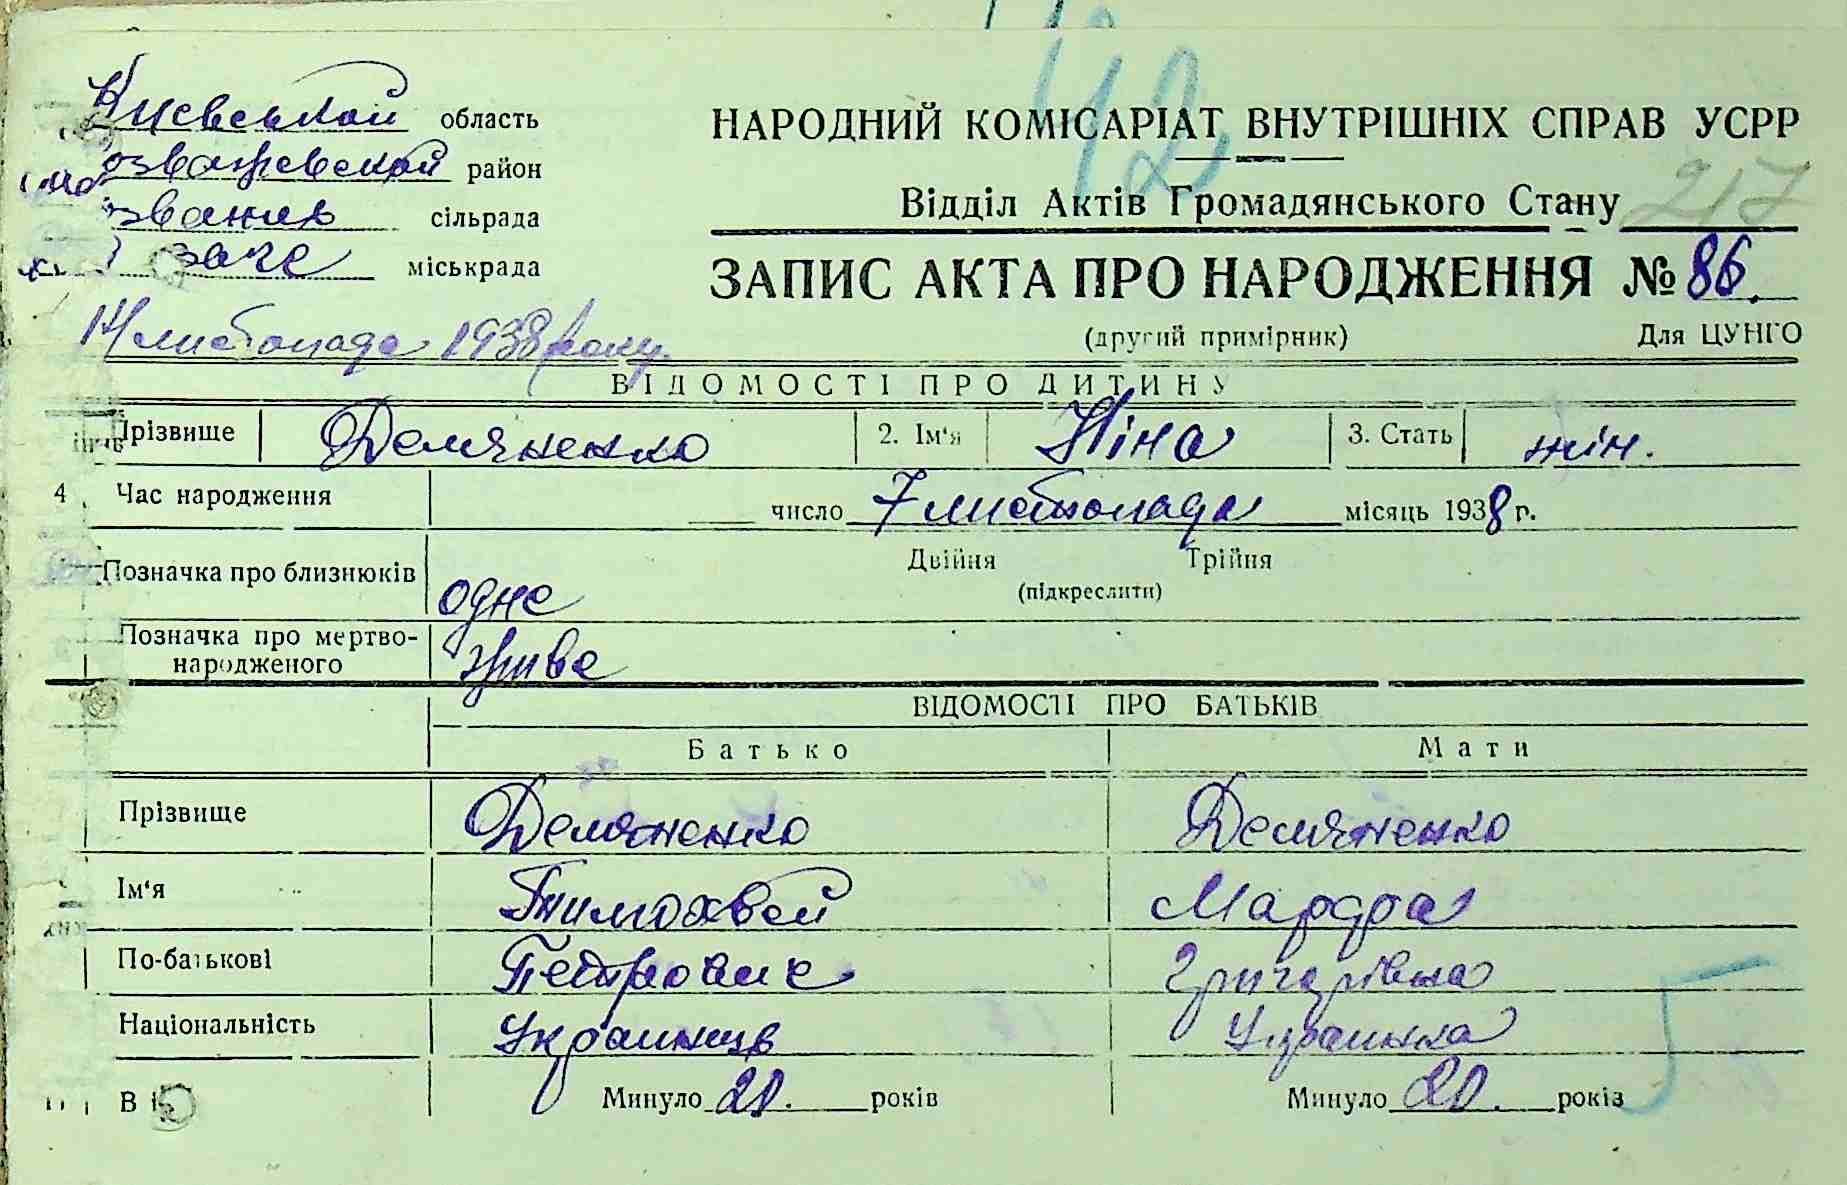 42
Киевской область
Розважевской район
Розважев сільрада
міськрада
НАРОДНИЙ КОМІСАРІАТ ВНУТРІШНІХ СПРАВ УСРР
Відділ Актів Громадянського Стану 217
ЗАПИС АКТА ПРО НАРОДЖЕННЯ № 86.
(другий примірник) Для ЦУНГО
14 листопада 1938 року.
ВІДОМОСТІ ПРО ДИТИНУ
Прізвище Демяненко 2. Ім'я Ніна 3. Стать жін.
4 Час народження число 7 листопада місяць 1938 г.
Позначка про близнюків одне Двійня Трійня
(підкреслити)
Позначка про мертво-
народженого живе
ВІДОМОСТІ ПРО БАТЬКІВ
Батько Мати
Прізвище Демяненко Демяненко
Ім'я Тимохвей Марфа
По-батькові Петрович Григорівна
Національність Украинць Украинка
Вік Минуло 20. років Минуло 20. років
5